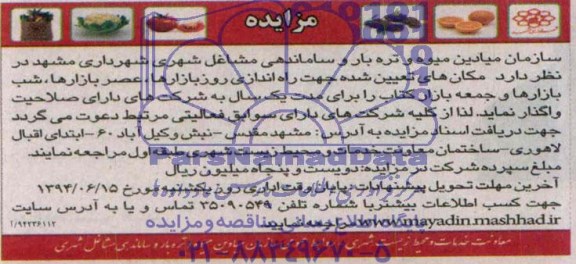 مزایده
سازمان میادین میوه و تره بار و ساماندهی مشاغل شهری شهرداری مشهد در
نظر دارد مکان های تعیین شده جهت راه اندازی روز بازارها، عصر بازارها، شب
بازارها و جمعه بازار کتاب را برای مدت یکسال به شرکت های دارای صلاحیت
واگذار نماید. لذا از کلیه شرکت های دارای سوابق فعالیتی مرتبط دعوت می گردد
جهت دریافت اسناد مزایده به آدرس: مشهد مقدس - نبش وکیل آباد ۶۰ - ابتدای اقبال
لاهوری - ساختمان معاونت خدمات و محیط زیست شهری طبقه اول مراجعه نمایند.
مبلغ سپرده شرکت در مزایده: دویست و پنجاه میلیون ریال
آخرین مهلت تحویل پیشنهادات: پایان وقت اداری روز یکشنبه مورخ ۱۳۹۴/۰۶/۱۵
جهت کسب اطلاعات بیشتر با شماره تلفن ۳۵۰۹۰۵۴۹ تماس و یا به آدرس سایت
www.mayadin.mashhad.ir مراجعه نمایید.
۱/۹۴۲۳۶۱۱۲
معاونت خدمات و محیط زیست شهری سازمان میادین میوه و تره بار و ساماندهی مشاغل شهری
ParsNamadData
پایگاه اطلاع رسانی مناقصه و مزایده
۰۲۱-۸۸۳۴۹۶۷۰-۵